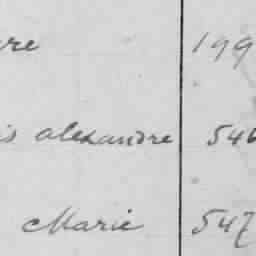 re 199
is alexandre 546
Marie 547